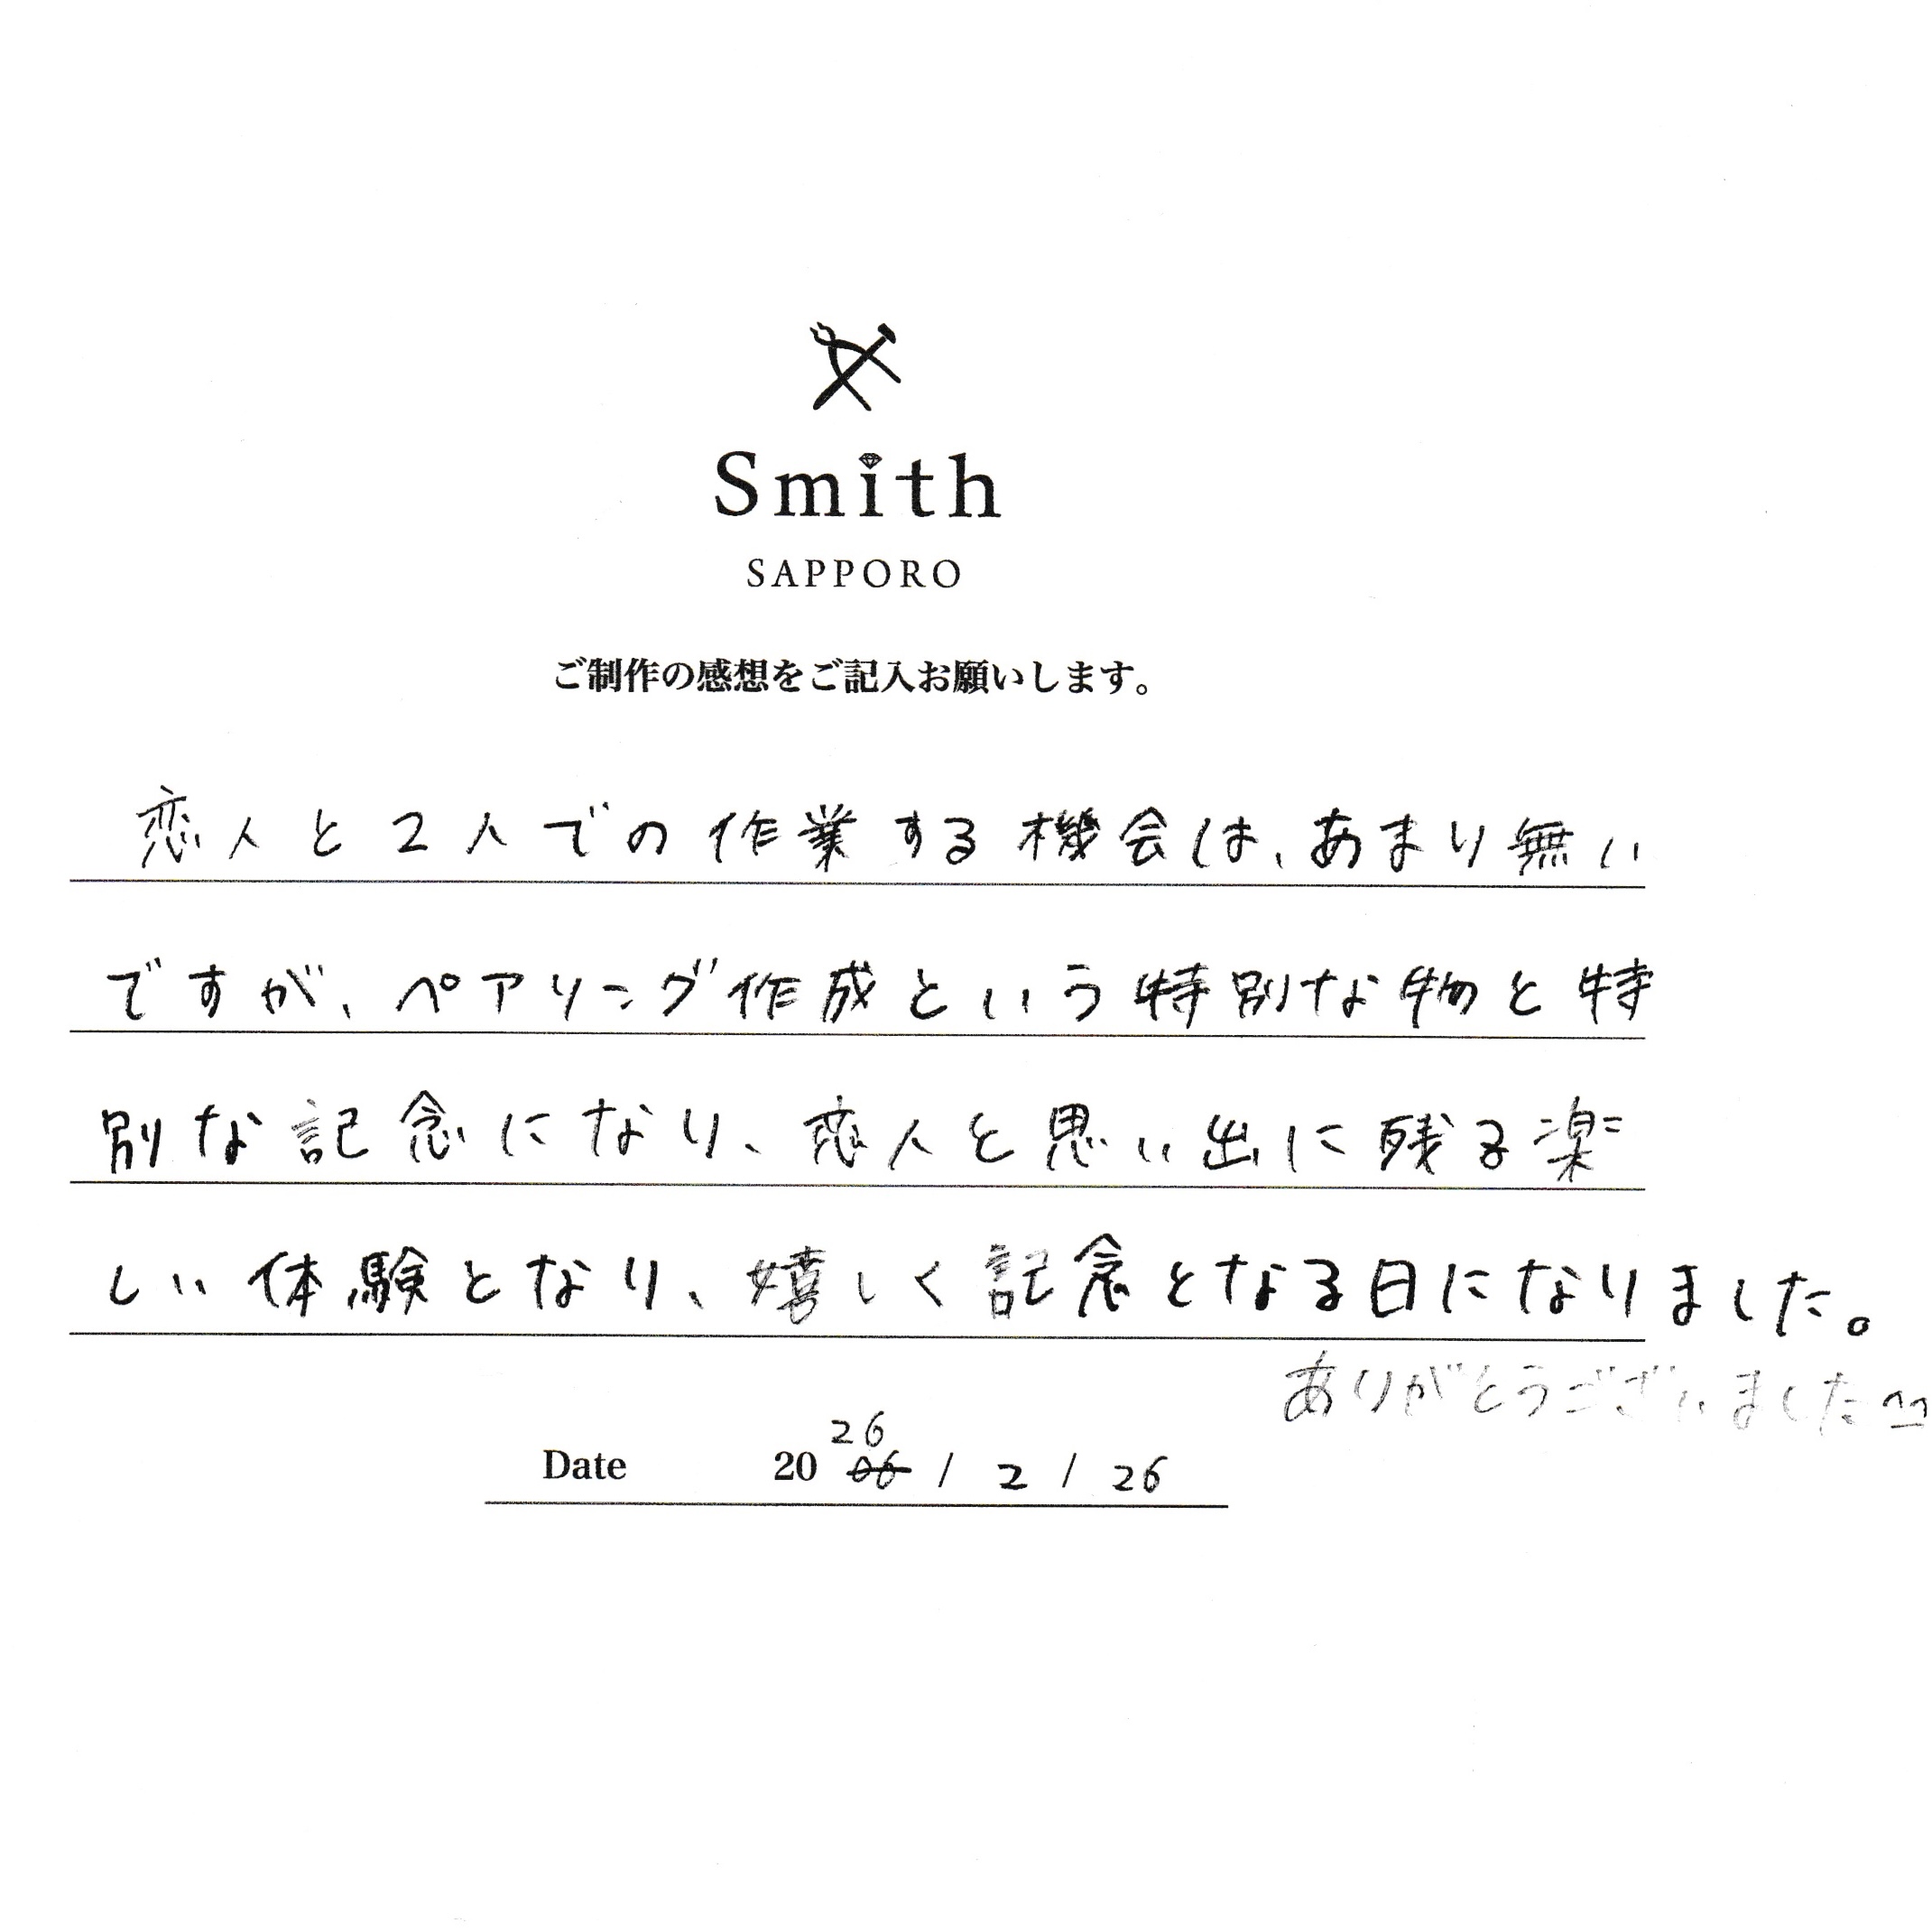 Smith
SAPPORO
ご制作の感想をご記入お願いします。
恋人と2人での作業する機会は、あまり無い
ですが、ペアリング作成という特別な物と特
別な記念になり、恋人と思い出に残る楽
しい体験となり、嬉しく記念となる日になりました。
ありがとうございました^^
26
Date 20 06 / 2 / 26